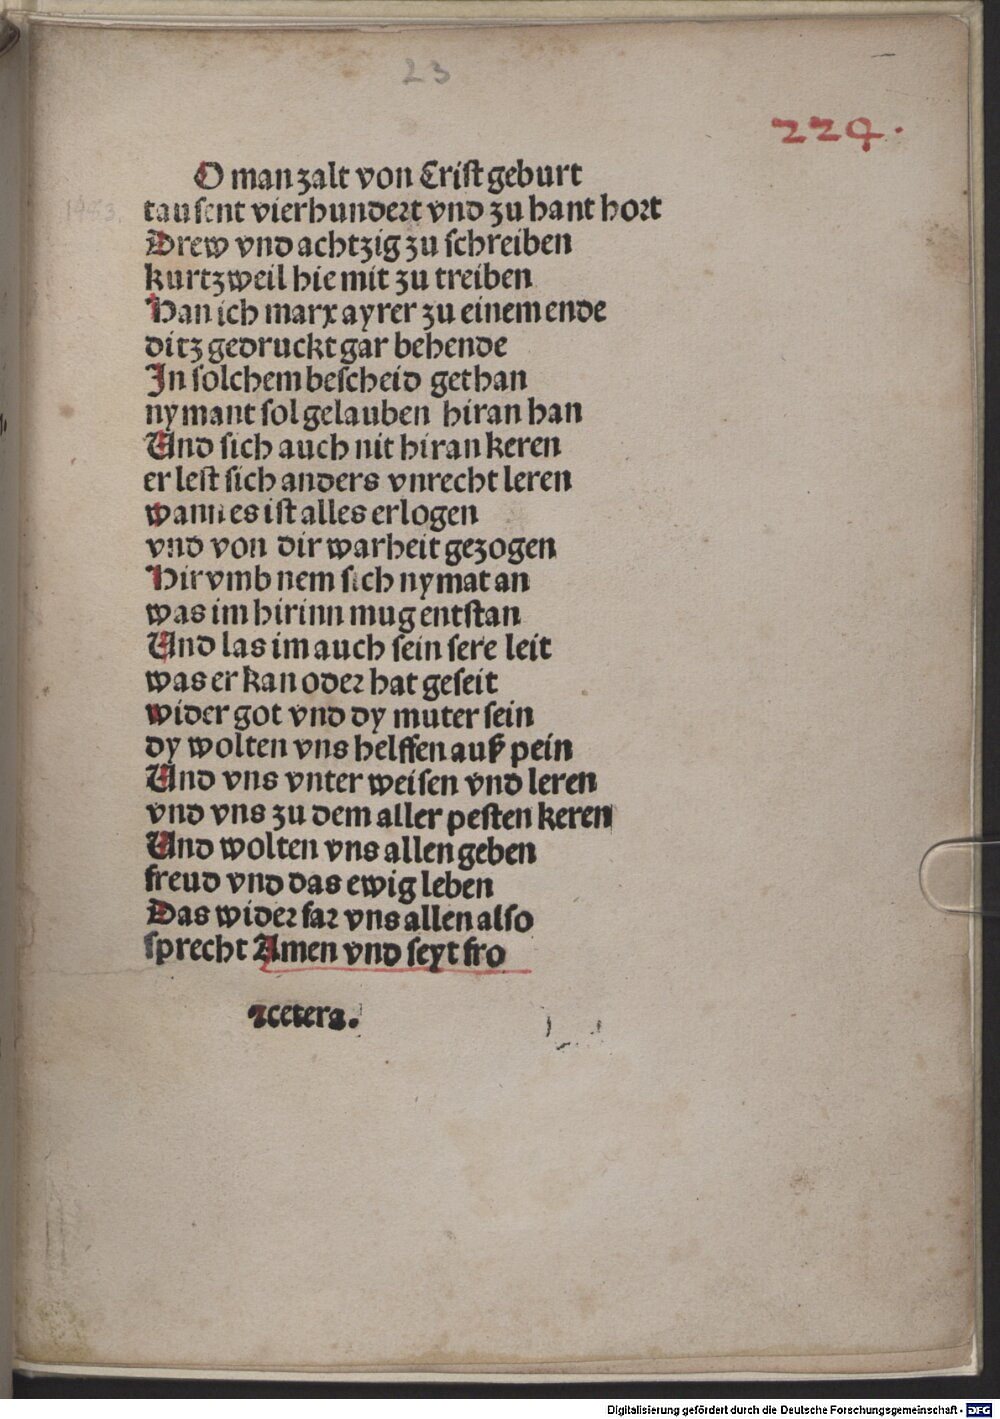 23
224.
O man zalt von Crist geburt
1483.
tausent vierhundert vnd zu hant hort
Drew vnd achtzig zu schreiben
kurtzweil hie mit zu treiben
Han ich marx ayrer zu einem ende
ditz gedruckt gar behende
In solchem bescheid gethan
nymant sol gelauben hiran han
Und sich auch nit hiran keren
er lest sich anders vnrecht leren
wann es ist alles erlogen
vnd von dir warheit gezogen
Hirvmb nem sich nymat an
was im hirinn mug entstan
Und las im auch sein sere leit
was er kan oder hat geseit
wider got vnd dy muter sein
dy wolten vns helffen auß pein
Und vns vnter weisen vnd leren
vnd vns zu dem aller pesten keren
Und wolten vns allen geben
freud vnd das ewig leben
Das wider far vns allen also
sprecht Amen vnd seyt fro
⁊cetera.
Digitalisierung gefördert durch die Deutsche Forschungsgemeinschaft - DFG